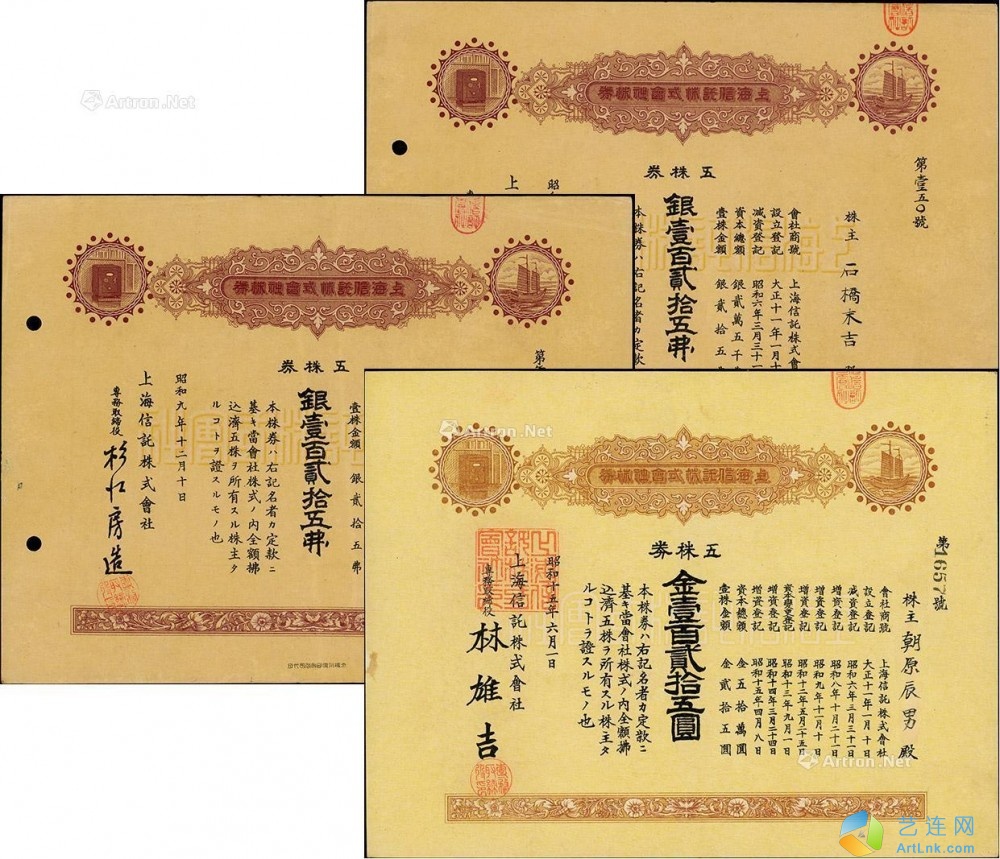 Artron.Net
上海信託株式會社株券
五株券
第壹五〇號
株主 石橋末吉
會社商號 上海信託株式會
設立登記 大正十一年一月十
減資登記 昭和六年三月三十一
資本總額 銀貳萬五千
壹株金額 銀貳拾五
銀壹百貳拾五弗
本株券ハ右記名者カ定款
上
上海信託株式會社株券
第
五株券
壹株金額 銀貳拾五弗
銀壹百貳拾五弗
本株券ハ右記名者カ定款ニ
基キ當會社株式ノ內全額拂
込濟五株ヲ所有スル株主タ
ルコトヲ證スルモノ也
昭和九年十二月十日
上海信託株式會社
專務取締役 杉江房造
上海信託株式會社株券
Artron.Net
五株券
第1657號
株主 朝原辰男 殿
會社商號 上海信託株式會社
設立登記 大正十一年一月十日
減資登記 昭和六年三月三十一日
增資登記 昭和八年十月二十一日
增資登記 昭和九年十一月十日
增資登記 昭和十二年五月二十五日
資本變更登記 昭和十三年九月一日
增資登記 昭和十四年三月二十四日
增資登記 昭和十五年四月八日
資本總額 金五拾萬圓
壹株金額 金貳拾五圓
金壹百貳拾五圓
本株券ハ右記名者カ定款ニ
基キ當會社株式ノ內全額拂
込濟五株ヲ所有スル株主タ
ルコトヲ證スルモノ也
昭和十五年六月一日
上海信託株式會社
專務取締役 林雄吉
Artron.Net
艺连网
ArtLnk.com